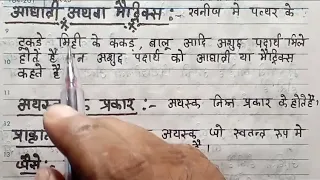 आधात्री अथवा मैट्रिक्स :- खनीज मे पत्थर के
टुकडे मिट्टी के ककड़, बालू आदि अशुद्ध पदार्थ मिले
होते हैं, न अशुद्ध पदार्थ को आधात्री या मैट्रिक्स
कहते हैं
अयस्क के प्रकार :- अयस्क निम्न प्रकार के होते हैं।
अयस्क जो स्वतन्त्र रूप मे
जैसे :